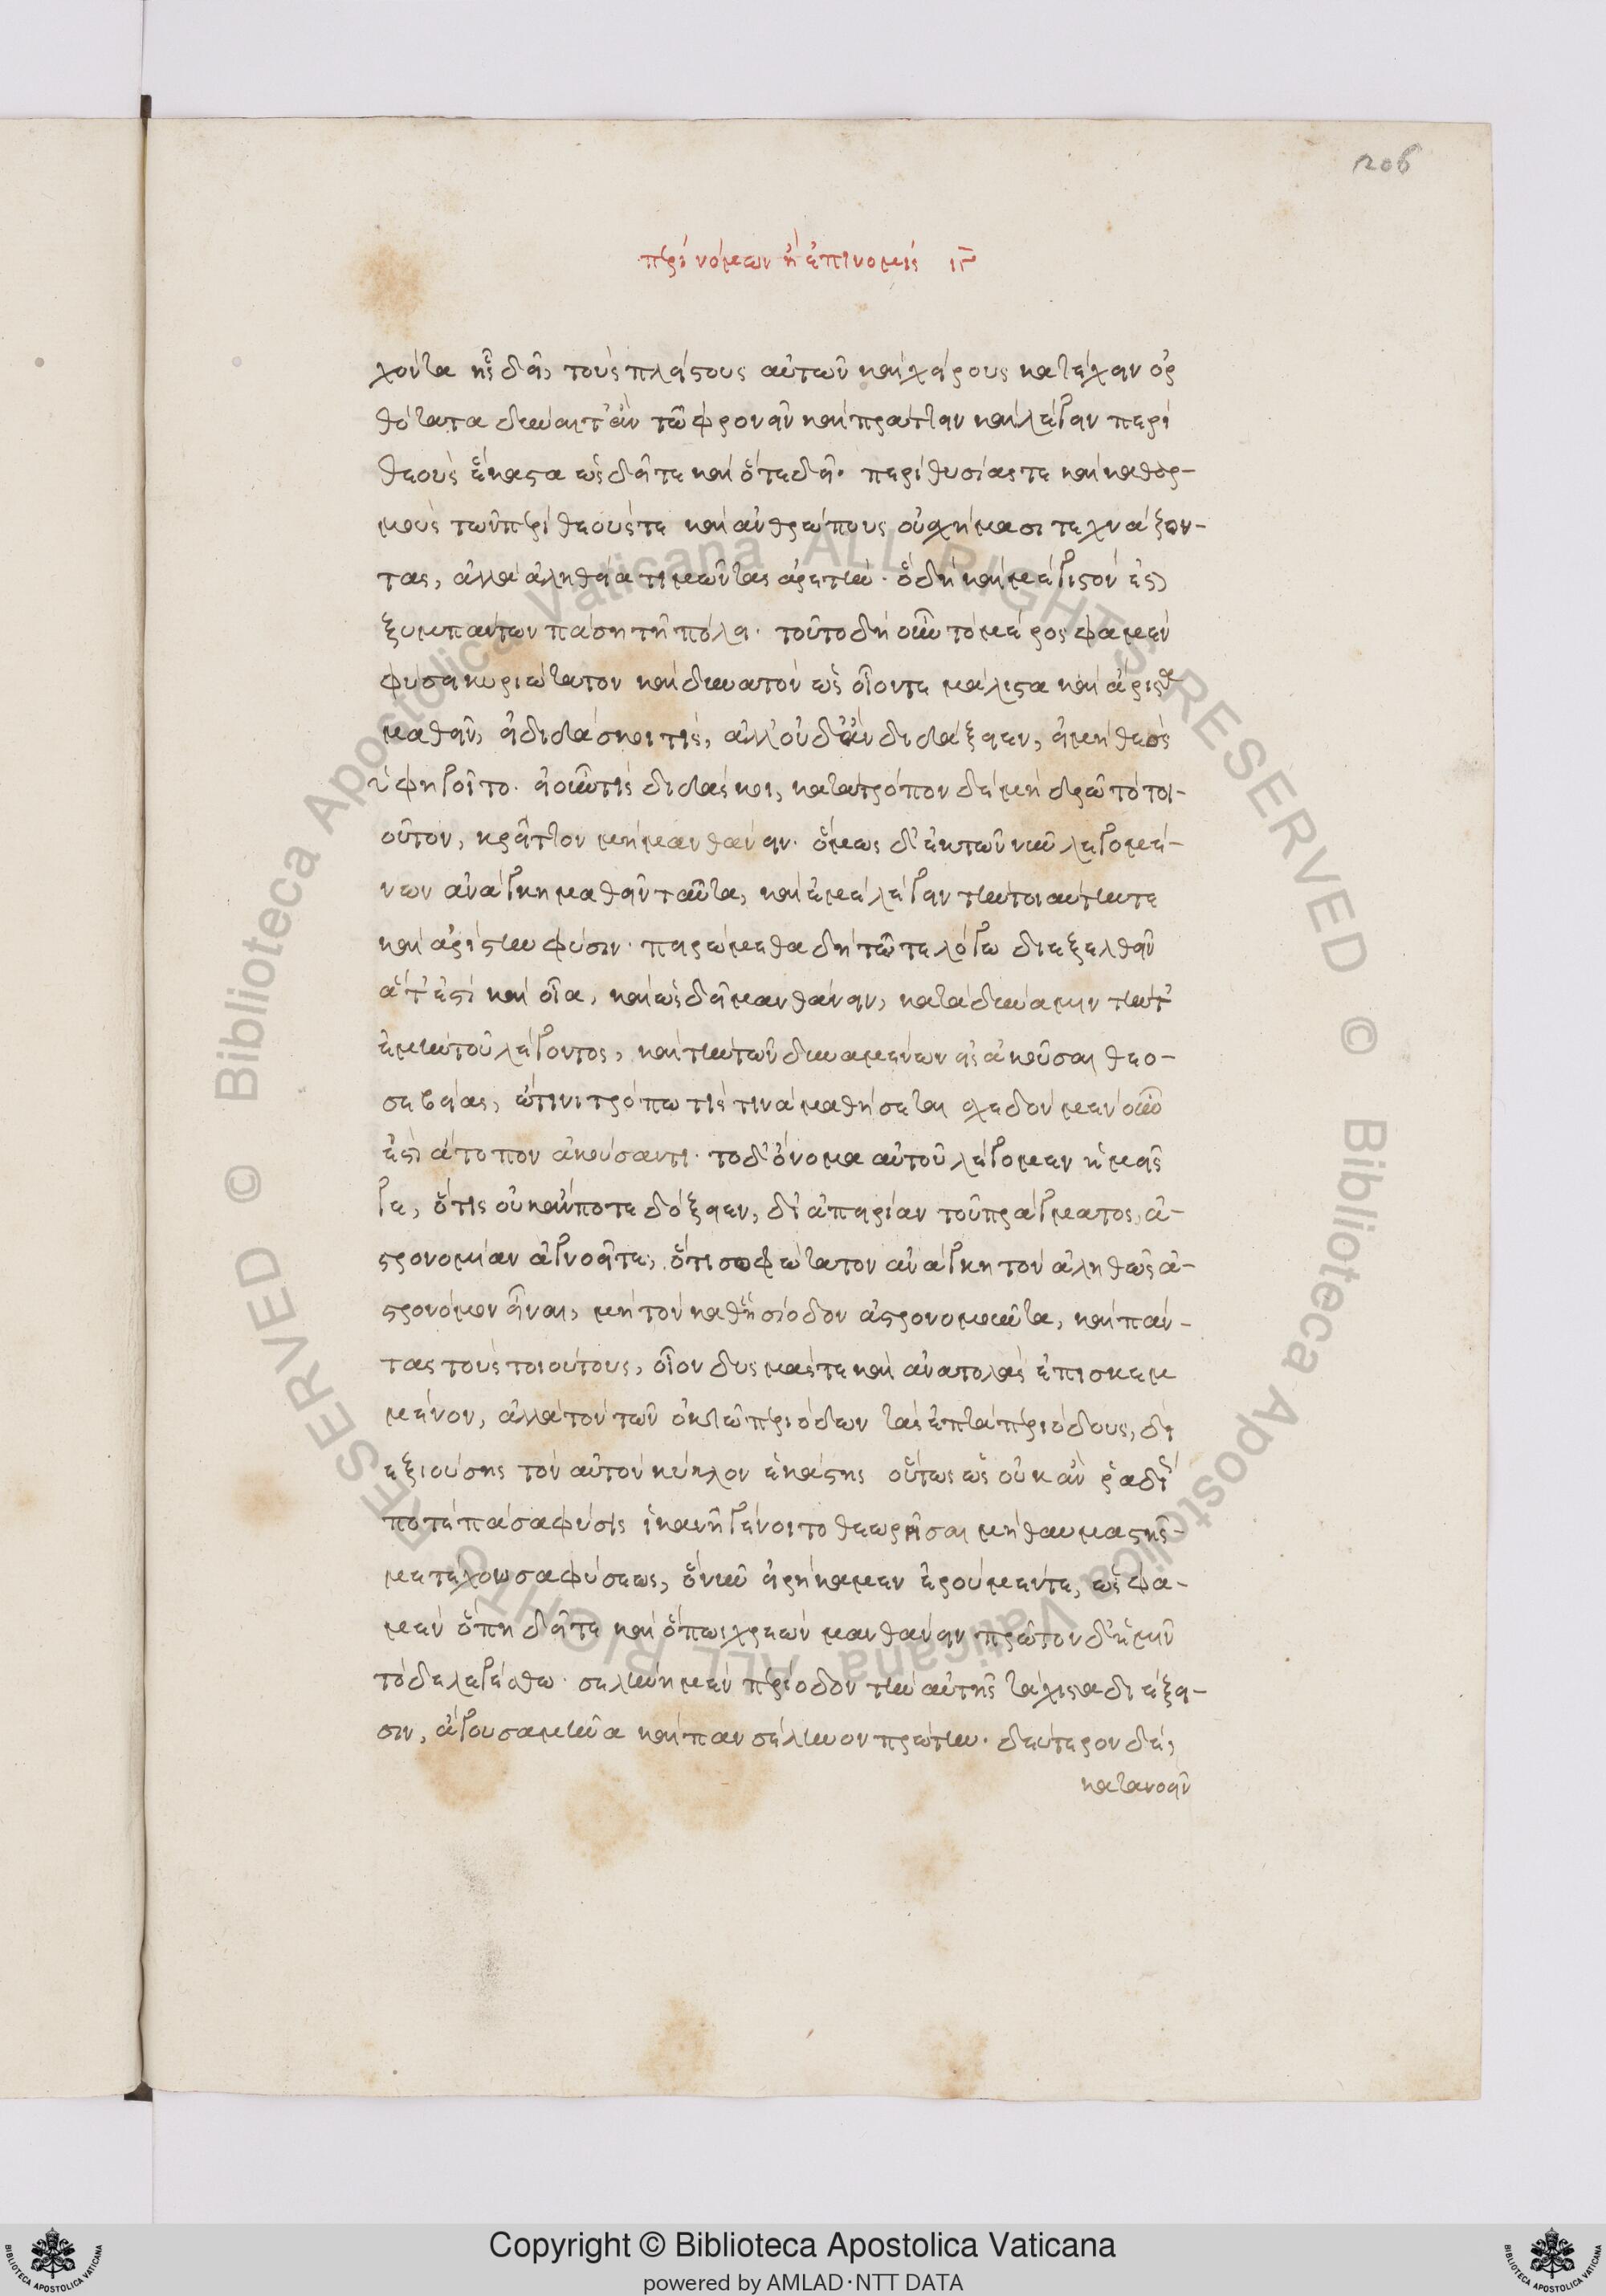 206
περὶ νόμων ἢ ἐπινομὶς ιγ
χόντα ἧς δεῖ, τοὺς πλείστους αὐτῶν καὶ χείρους κατέχειν ὀρ
θότατα δύναιτ' ἂν τῶ φρονεῖν καὶ πράττειν καὶ λέγειν περὶ
θεοὺς ἕκαστα ὡς δεῖ τε καὶ ὅτε δεῖ. περὶ θυσίας τε καὶ καθαρ-
μοὺς τῶν περὶ θεούς τε καὶ ἀνθρώπους οὐ σχήμασι τεχνάζον-
τας, ἀλλὰ ἀληθεία τιμῶντας ἀρετήν. ὃ δὴ καὶ μέγιστόν ἐστι
ξυμπάντων πάση τῆ πόλει. τοῦτο δὴ οὖν τὸ μέρος φαμὲν
φύσει κυριώτατον καὶ δυνατὸν ὡς οἷόντε μάλιστα καὶ ἄριστα
μαθεῖν, εἰ διδάσκοι τίς, ἀλλ' οὐδ' ἂν διδάξειεν, εἰ μὴ θεὸς
ὑφηγοῖτο. εἰ οὖν τὶς διδάσκοι, κατὰ τρόπον δὲ μὴ δρῶ τὸ τοι-
οῦτον, κρεῖττον μὴ μανθάνειν. ὅμως δ' ἐκ τῶν νῦν λεγομέ-
νων ἀνάγκη μαθεῖν ταῦτα, καὶ ἐμὲ λέγειν τὴν τοιαύτην τε
καὶ ἀρίστην φύσιν. πειρώμεθα δὴ τῶ τε λόγω διεξελθεῖν
ἅ τ' ἐστὶ καὶ οἷα, καὶ ὡς δεῖ μανθάνειν, κατὰ δύναμιν τήν τ'
ἐμὴν τοῦ λέγοντος, καὶ τὴν τῶν δυναμένων εἰσακοῦσαι θεο-
σεβείας, ὧτινι τρόπω τίς τινὰ μαθήσεται σχεδὸν μὲν οὖν
ἐστὶ ἄτοπον ἀκούσαντι. τὸ δ' ὄνομα αὐτοῦ λέγομεν ἡμεῖς
γε, ὅ τις οὐκ ἄν ποτε δόξειεν, δι' ἀπειρίαν τοῦ πράγματος, ἀ-
στρονομίαν ἀγνοεῖτε, ὅτι σοφώτατον ἀνάγκη τὸν ἀληθῶς ἀ-
στρονόμον εἶναι, μὴ τὸν καθ' ἡσίοδον ἀστρονομοῦντα, καὶ πάν-
τας τοὺς τοιούτους, οἷον δυσμάς τε καὶ ἀνατολὰς ἐπισκεμ
μένον, ἀλλὰ τὸν τῶν ὀκτὼ περιόδων τὰς ἑπτὰ περιόδους, δι
εξιούσης τὸν αὐτὸν κύκλον ἑκάστης οὕτως ὡς οὐκ ἂν ῥαδί
ποτὲ πᾶσα φύσις ἱκανὴ γένοιτο θεωρῆσαι μὴ θαυμαστῆς
μετέχουσα φύσεως, ὃ νῦν εἰρήκαμεν ἐροῦμέν τε, ὡς φα-
μὲν ὅπη δεῖ τε καὶ ὅπως χρεὼν μανθάνειν πρῶτον δ' ἡμῖν
τόδε λεγέσθω. σελήνη μὲν περίοδον τὴν αὐτῆς τάχιστα διέξει-
σιν, ἄγουσα μῆνα καὶ πανσέληνον πρώτην. δεύτερον δὲ,
κατανοεῖν